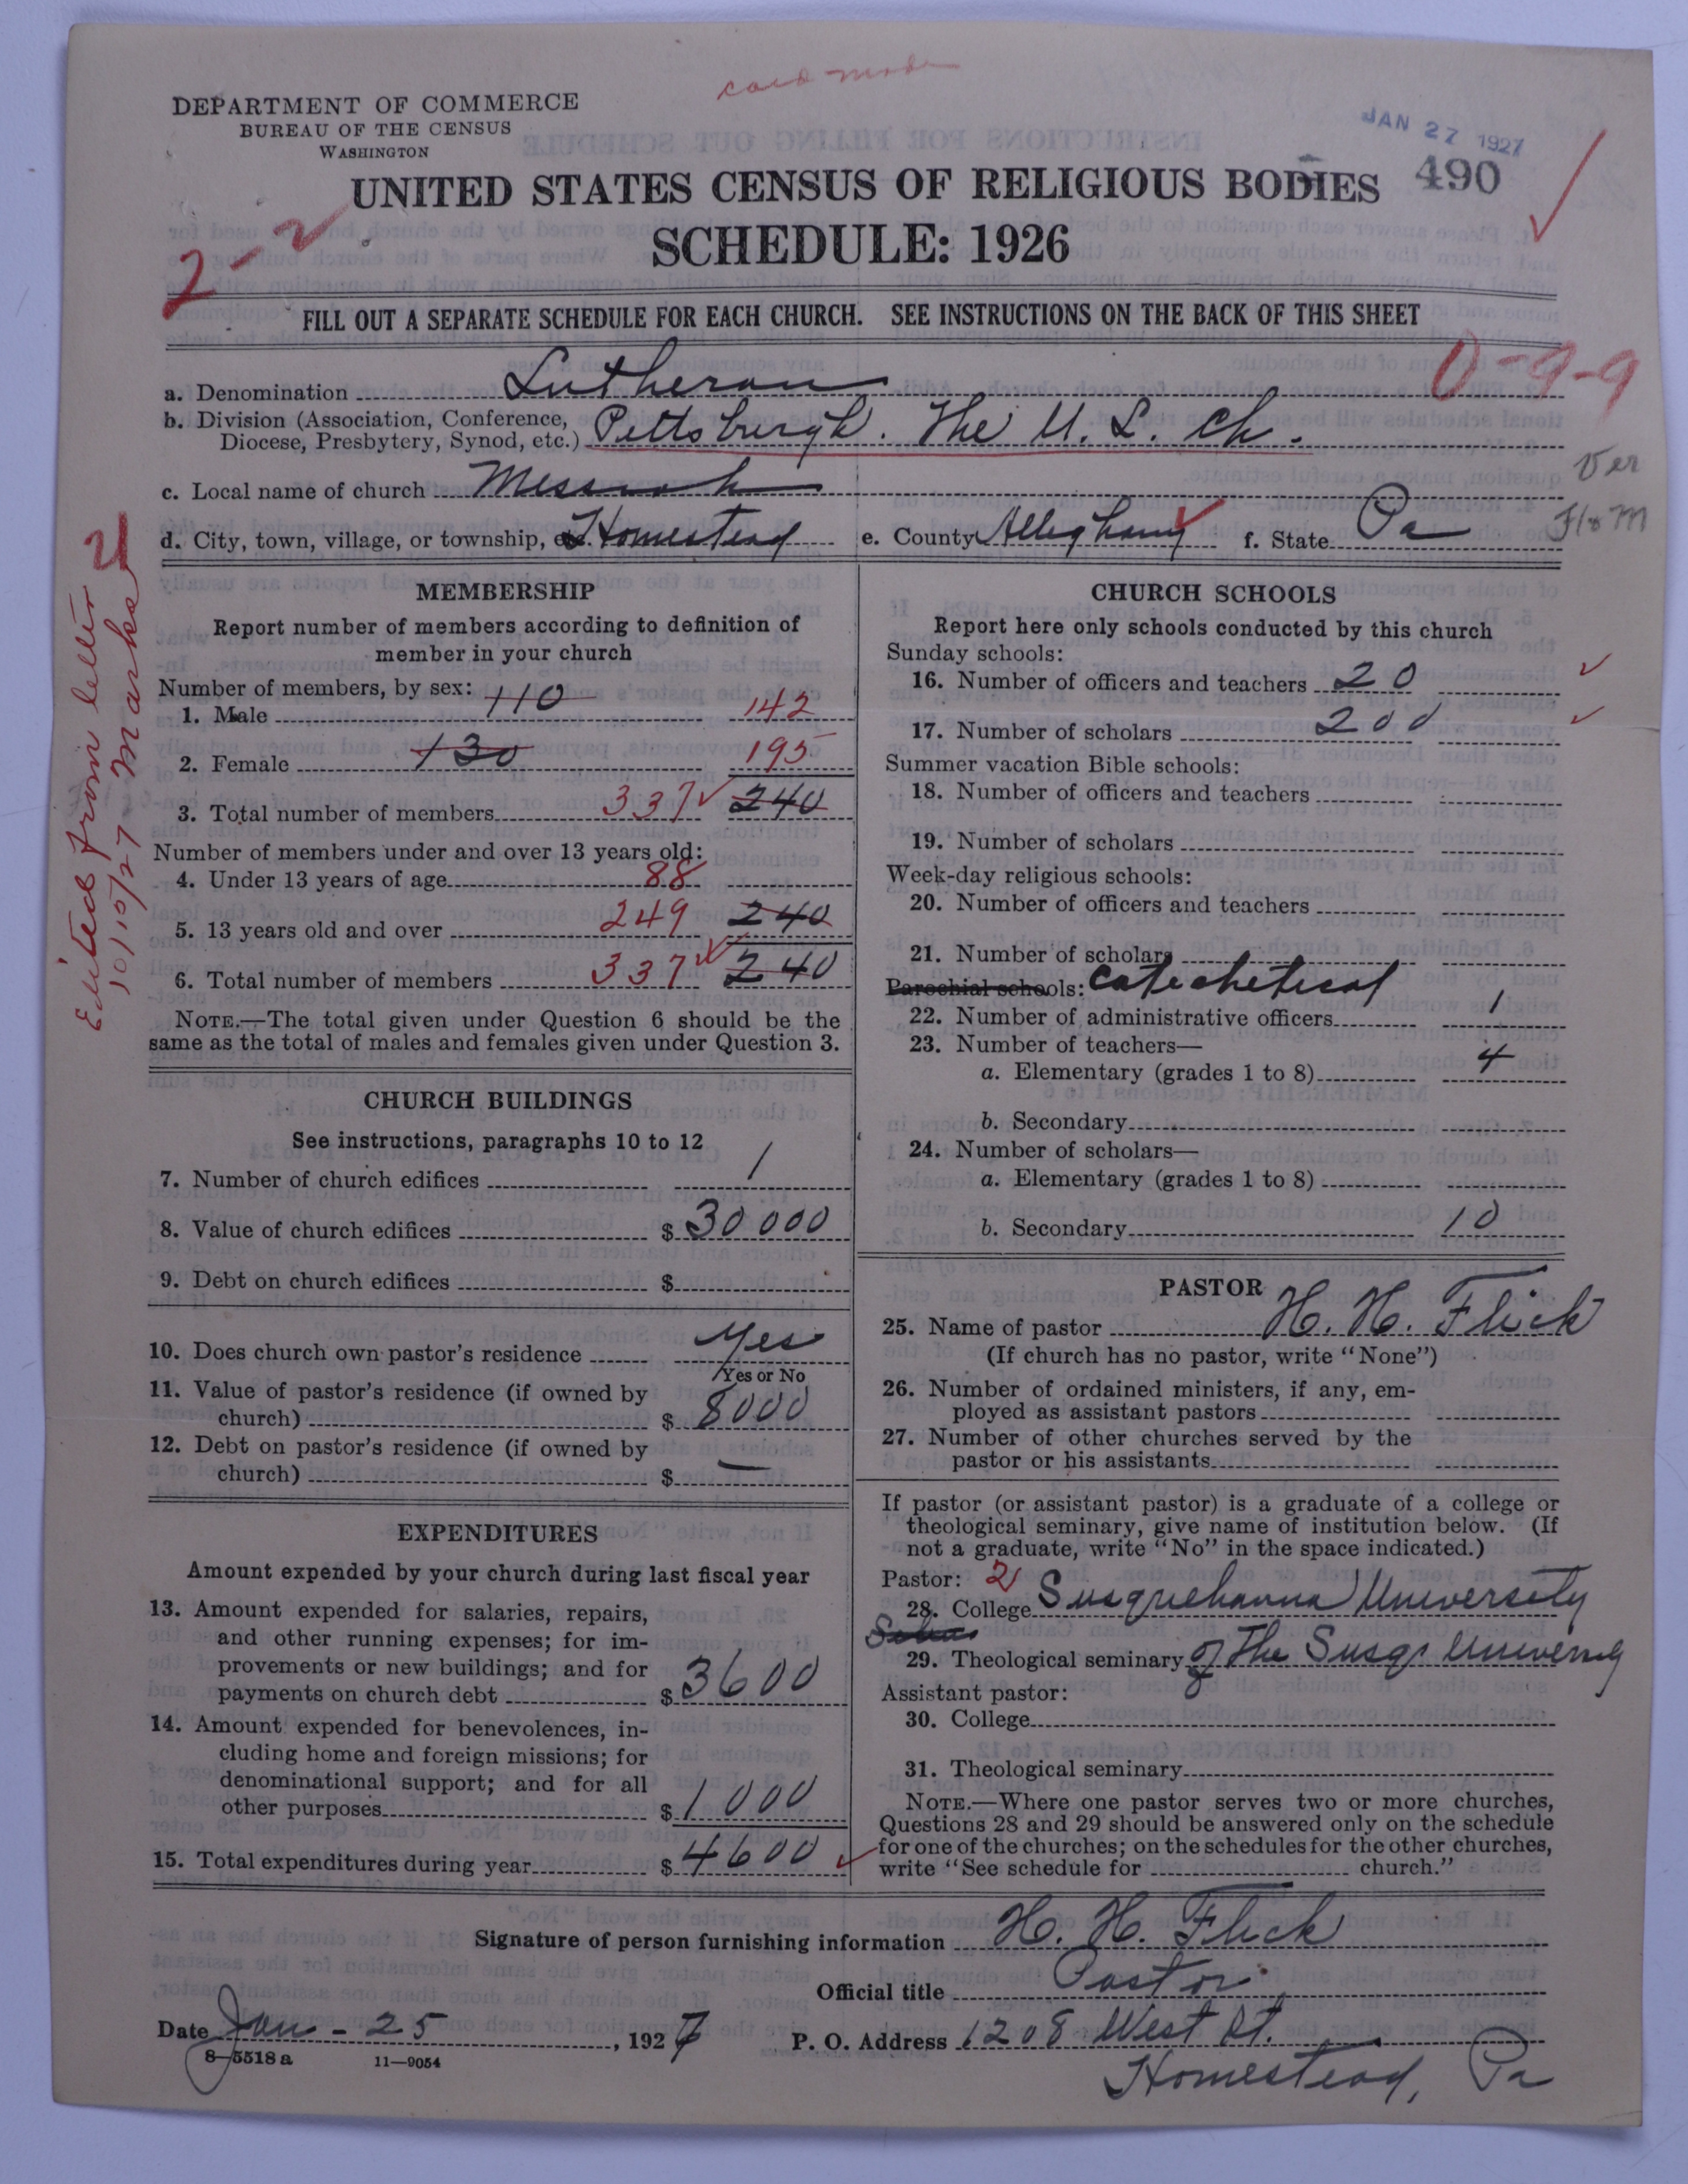 card made
DEPARTMENT OF COMMERCE
BUREAU OF THE CENSUS
WASHINGTON
JAN 27 1927
490
UNITED STATES CENSUS OF RELIGIOUS BODIES
SCHEDULE: 1926
2-2
FILL OUT A SEPARATE SCHEDULE FOR EACH CHURCH. SEE INSTRUCTIONS ON THE BACK OF THIS SHEET
0-9-9
a. Denomination Lutheran
b. Division (Association, Conference,
Diocese, Presbytery, Synod, etc.) Pittsburgh. The U. L. Ch.
c. Local name of church Messiah
Ver
d. City, town, village, or township, Homestead e. County Allegheny f. State Pa
Flo M
Edited from letter
10/10/27 Marks
MEMBERSHIP
Report number of members according to definition of
member in your church
Number of members, by sex:
1. Male 110 142
2. Female 130 195
3. Total number of members 337 240
Number of members under and over 13 years old:
4. Under 13 years of age 88
5. 13 years old and over 249 240
6. Total number of members 337 240
NOTE.—The total given under Question 6 should be the
same as the total of males and females given under Question 3.
CHURCH BUILDINGS
See instructions, paragraphs 10 to 12
7. Number of church edifices 1
8. Value of church edifices $ 30000
9. Debt on church edifices $
10. Does church own pastor's residence Yes
Yes or No
11. Value of pastor's residence (if owned by
church) $ 8000
12. Debt on pastor's residence (if owned by
church) $ —
EXPENDITURES
Amount expended by your church during last fiscal year
13. Amount expended for salaries, repairs,
and other running expenses; for im-
provements or new buildings; and for
payments on church debt $ 3600
14. Amount expended for benevolences, in-
cluding home and foreign missions; for
denominational support; and for all
other purposes $ 1000
15. Total expenditures during year $ 4600
CHURCH SCHOOLS
Report here only schools conducted by this church
Sunday schools:
16. Number of officers and teachers 20
17. Number of scholars 200
Summer vacation Bible schools:
18. Number of officers and teachers
19. Number of scholars
Week-day religious schools:
20. Number of officers and teachers
21. Number of scholars
Parochial schools: Catechetical
22. Number of administrative officers 1
23. Number of teachers—
a. Elementary (grades 1 to 8) 4
b. Secondary
24. Number of scholars—
a. Elementary (grades 1 to 8)
b. Secondary 10
PASTOR
25. Name of pastor H. H. Flick
(If church has no pastor, write "None")
26. Number of ordained ministers, if any, em-
ployed as assistant pastors
27. Number of other churches served by the
pastor or his assistants
If pastor (or assistant pastor) is a graduate of a college or
theological seminary, give name of institution below. (If
not a graduate, write "No" in the space indicated.)
Pastor: 2
28. College Susquehanna University
29. Theological seminary of The Susq. University
Assistant pastor:
30. College
31. Theological seminary
NOTE.—Where one pastor serves two or more churches,
Questions 28 and 29 should be answered only on the schedule
for one of the churches; on the schedules for the other churches,
write "See schedule for church."
Signature of person furnishing information H. H. Flick
Official title Pastor
Date Jan - 25, 1927 P. O. Address 1208 West St.
Homestead, Pa
8-5518a 11—9054